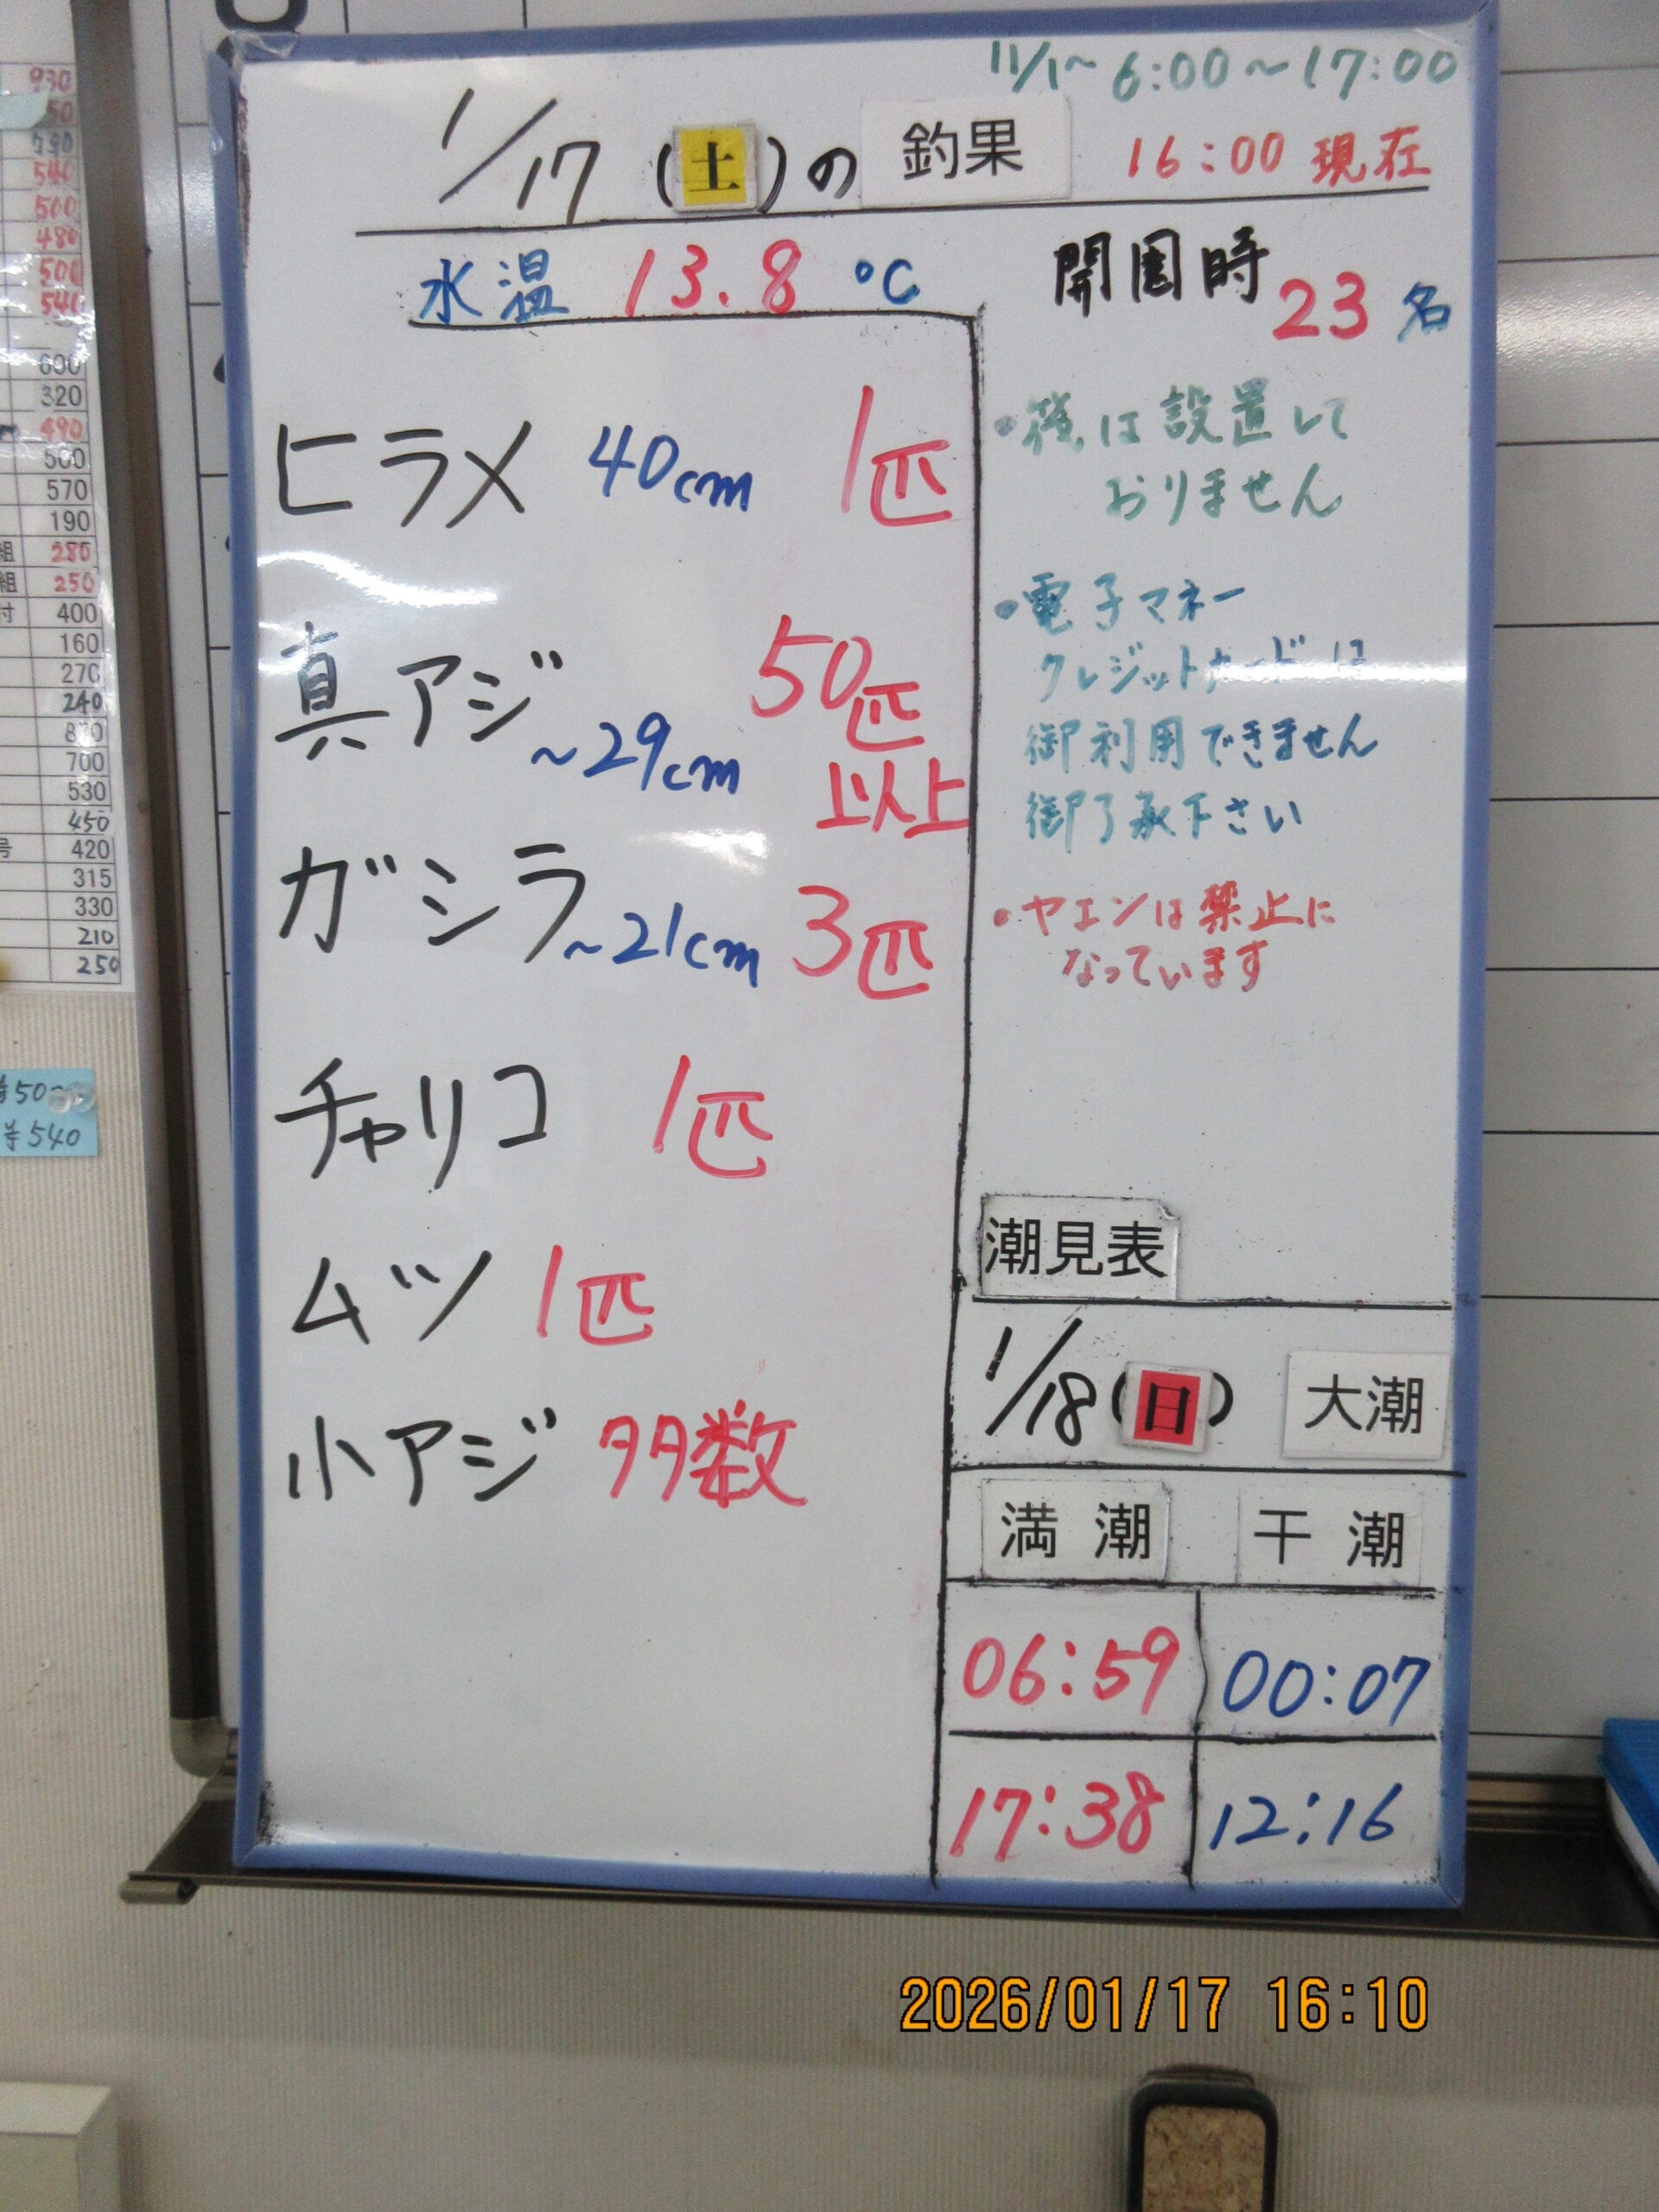 11/1～6:00～17:00
1/17(土)の 釣果 16:00 現在
水温 13.8 ℃
開園時 23名
ヒラメ 40cm 1匹
真アジ ~29cm 50匹以上
ガシラ ~21cm 3匹
チャリコ 1匹
ムツ 1匹
小アジ 多数
は設置して
おりません
・電子マネー
クレジットカードは
御利用できません
御了承下さい
・ヤエンは禁止に
なっています
潮見表
1/18(日) 大潮
満潮 干潮
06:59 00:07
17:38 12:16
2026/01/17 16:10
930
50
540
500
480
500
540
600
320
490
500
570
190
組 280
組 250
付 400
160
270
240
870
700
530
450
号 420
315
330
210
250
¥540